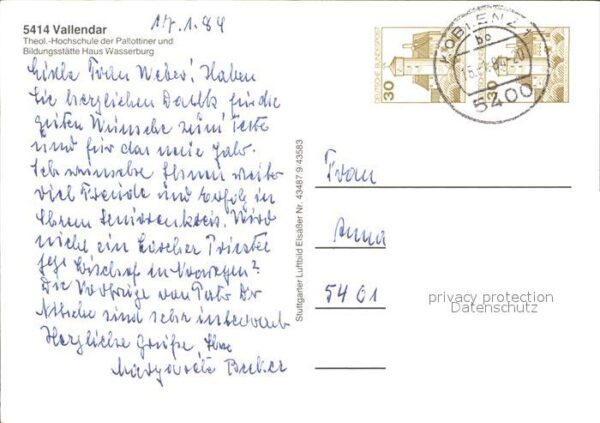 17.1.84
5414 Vallendar
Theol.-Hochschule der Pallottiner und
Bildungsstätte Haus Wasserburg
Frau Weber! Haben
Sie herzlichen Dank für die
guten Wünsche zum Feste
und für das neue Jahr.
Ich wünsche Ihnen weiter
viel Freude und Erfolg in
Ihrem Seniorenkreis. Wird
nicht ein Priester
Bischof in Norwegen?
Die Vorträge von Pater Dr
sind sehr interessant
Herzliche Grüße Ihre
Margarete Becker
Stuttgarter Luftbild Elsäßer Nr. 43487 9 43583
DEUTSCHE BUNDESPOST
30
30
KOBLENZ 1
bo
5400
Frau
Anna
5401
privacy protection
Datenschutz